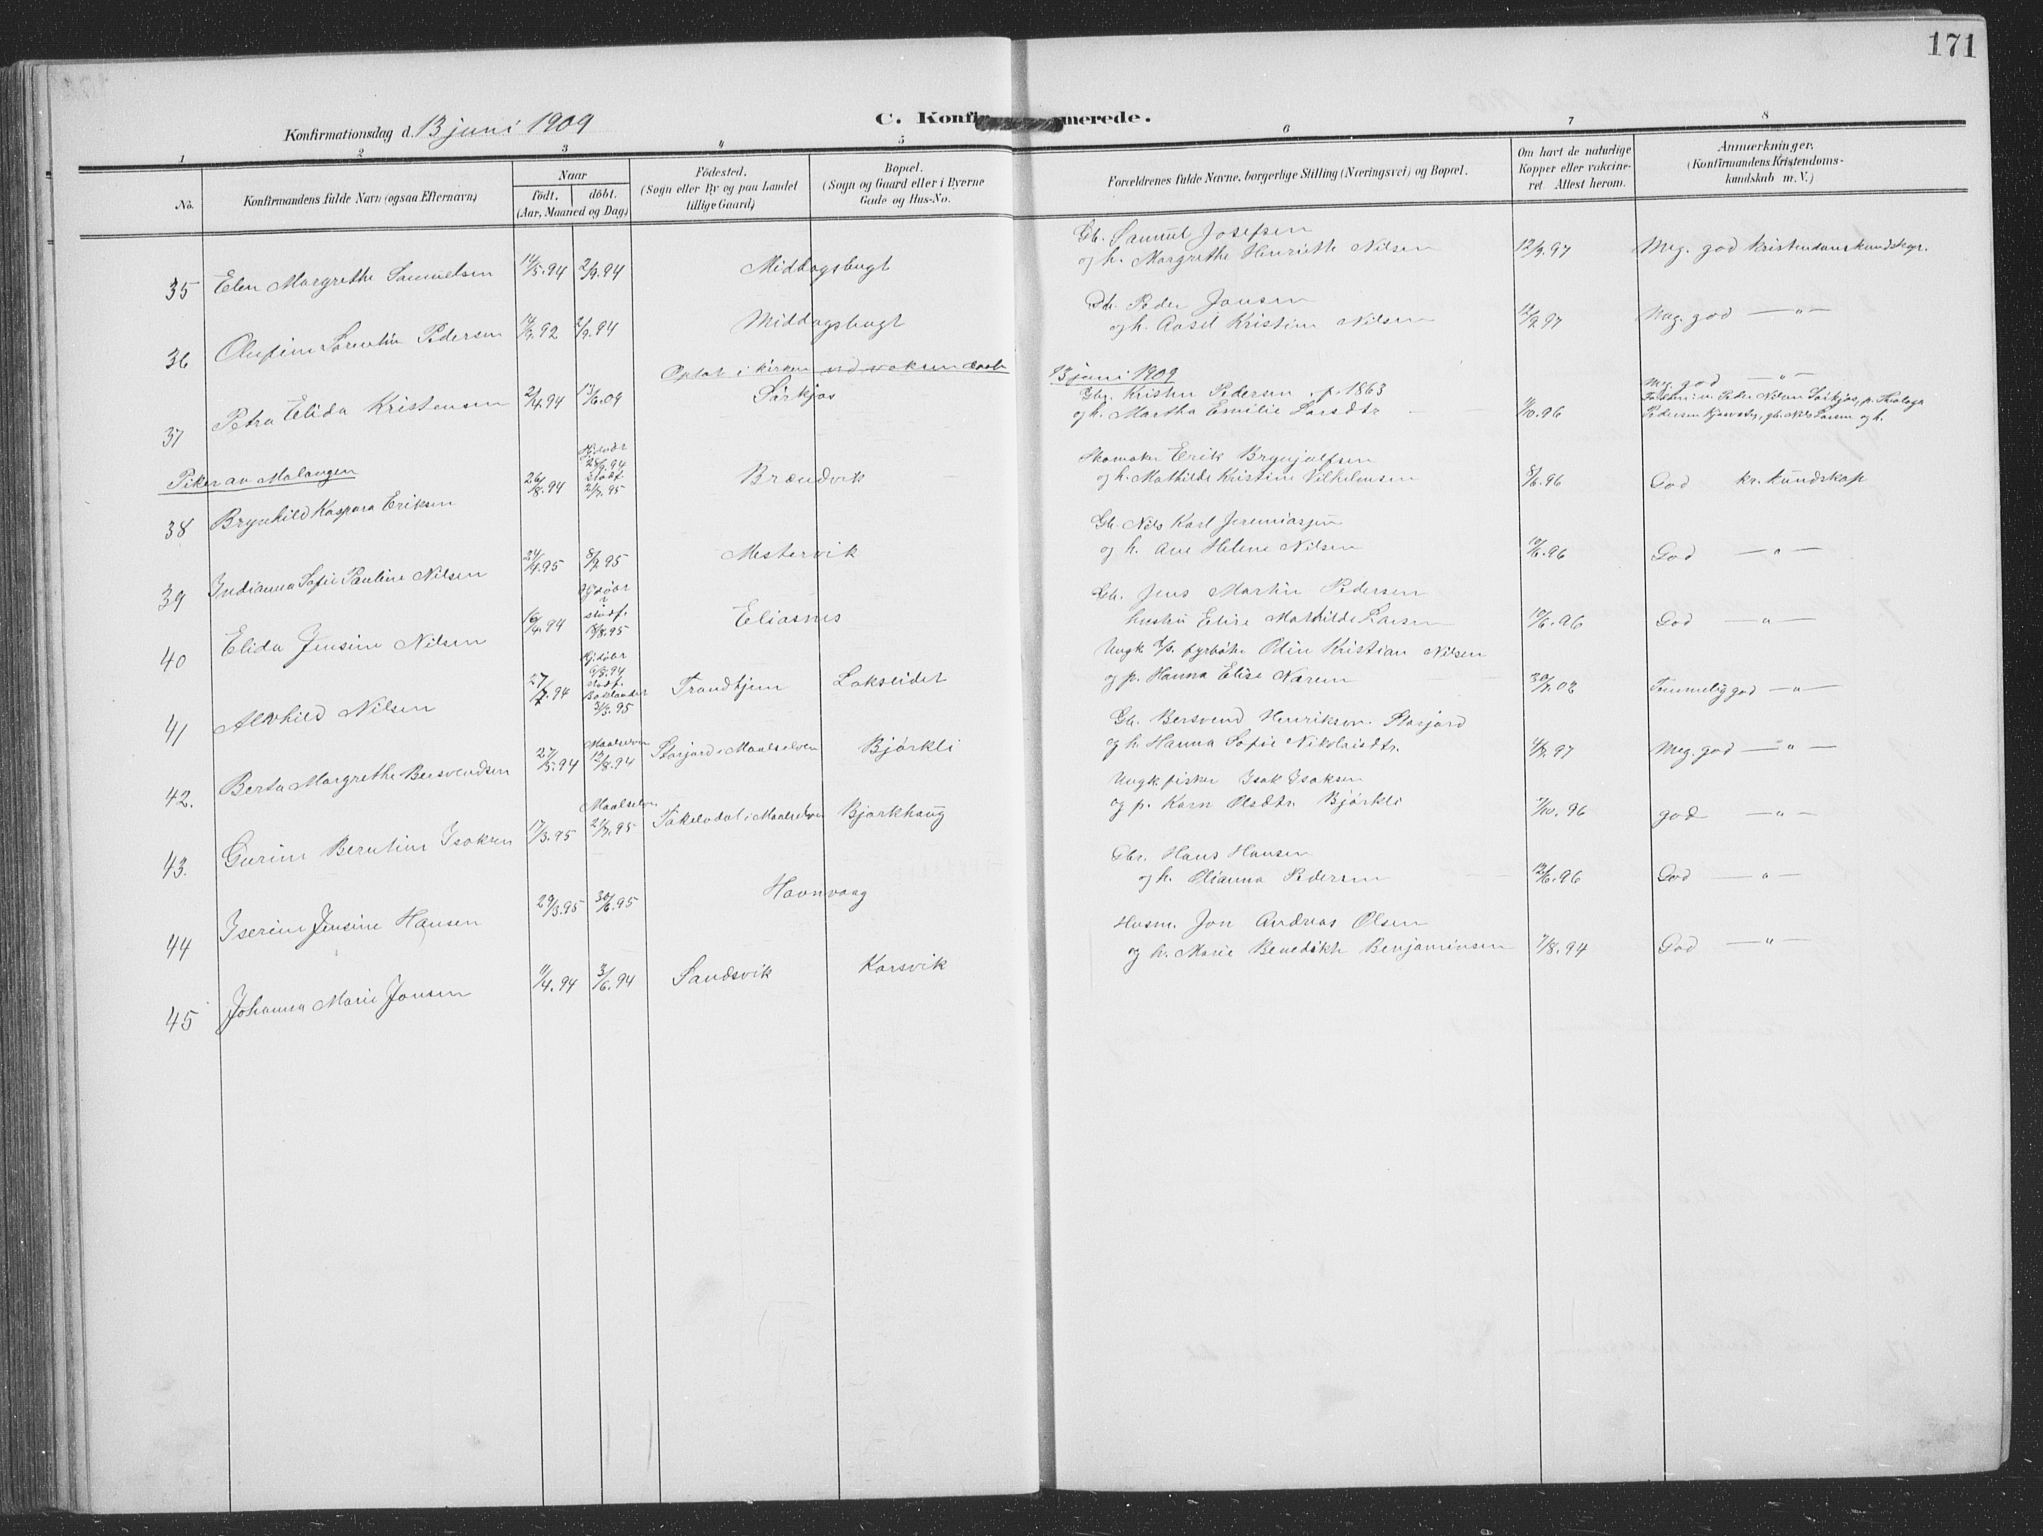 171
Konfirmationsdag d. 13 juni 1909
C. Konfir merede.
1 2 3 4 5 6 7 8
No.
Konfirmandens fulde Navn (ogsaa Efternavn)
Naar
födt. döbt.
(Aar, Maaned og Dag)
Födested.
(Sogn eller By og paa Landet
tillige Gaard)
Bopæl.
(Sogn og Gaard eller i Byerne
Gade og Hus-No.
Forældrenes fulde Navne, borgerlige Stilling (Næringsvei) og Bopæl.
Om havt de naturlige
Kopper eller vakcine-
ret Attest herom.
Anmærkninger.
(Konfirmandens Kristendoms-
kundskab m. V.)
35 Elen Margrethe Samuelsen 14/5.94 2/9.94 Middagsbugt
Gb. Samuel Josefsen
og h. Margrethe Henriette Nilsen 12/9.97 Meg. god kristendomskundskap.
36 Olufine Sørentine Pedersen 14/9.92 2/9.94 Middagsbugt
Gb. Peder Jansen
og h. Aasel Kristine Nilsen 12/9.97 Meg. god — " —
Optat i kirken ved voksen daab 13 juni 1909
37 Petra Elida Kristensen 2/4.94 13/6.09 Sörkjos
Gbr. Kristen Pedersen f. 1863
og h. Martha Emilie Larsdtr 11/10.96 Meg. god — " —
Pedersen
Piker av Malangen
38 Brynhild Kaspara Eriksen 26/8.94 Hjdøbt 28/9.94 stadf. 2/7.95 Brændvik
Skomaker Erik Brynjulfsen
og h. Mathilde Kristine Vilhelmsen 8/6.96 God kr. kundskap
39 Indianna Sofie Pauline Nilsen 24/4.95 8/7.95 Mestervik
Gb. Nils Karl Jeremiassen
og h. Ane Helene Nilsen 10/6.96 God — " —
40 Elida Jensine Nilsen 16/4.94 Hjdøbt stadf. 18/8.95 Eliasnes
Gb. Jens Martin Pedersen
hustru Elise Mathilde Larsen 10/6.96 God — " —
41 Alvhild Nilsen 27/7.94 Hjdøbt stadf. Baklandet 3/3.95 Trondhjem Lakselidet
Ungk. fyrbøter Odin Kristian Nilsen
og p. Hanna Elise Næren 30/7.02 Temmelig god — " —
42. Berta Margrethe Bersvendsen 27/5.94 Maalselven 12/8.94 Storjord i Maalselven Björkli
Gb. Bersvend Henriksen Storjord
og h. Hanna Sofie Nikolaisdtr. 4/9.97 Meg. god — " —
43. Gurine Berntine Isaksen 17/3.95 Maalselven 21/7.95 Takelvdal i Maalselven Björkhaug
Ungk. fisker Isak Isaksen
og p. Karn Olsdtr. Björkli 7/10.96 god — " —
44 Iserine Jensine Hansen 29/3.95 30/6.95 Havnvaag
Gbr. Hans Hansen
og h. Olianna Pedersen 12/6.96 God — " —
45 Johanna Marie Jonsen 11/4.94 3/6.94 Sandsvik Korsvik
Husm. Jon Andreas Olsen
og h. Marie Benedikte Benjaminsen 7/8.94 God — " —